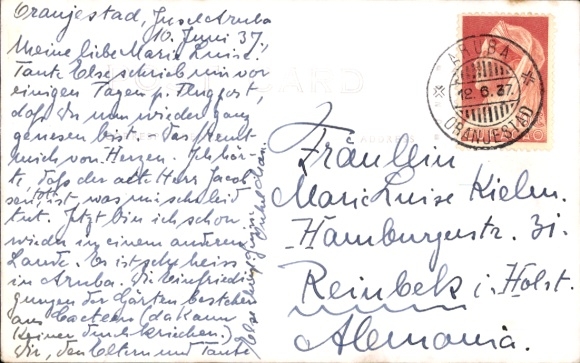 Oranjestad, Insel Aruba
10. Juni 37.
Meine liebe Marie Luise!
Tante Else schrieb mir vor
einigen Tagen p. Flugpost,
daß Du nun wieder ganz
genesen bist. Das freut
mich von Herzen. Ich hör-
te, daß der alte Herr Jacob
sen tot ist, was mir sehr leid
tut. Jetzt bin ich schon
wieder in einem anderen
Lande. Es ist sehr heiss
in Aruba. Die Einfriedi-
gungen der Gärten bestehen
aus Cacteen (da kann
keiner durchkriechen.)
Dir, den Eltern und Tante
Else
Onkel
ARUBA
12.6.37.
ORANJESTAD
Fräulein
Marie Luise Kielm.
Hamburgerstr. 31.
Reinbek i. Holst.
Alemania.